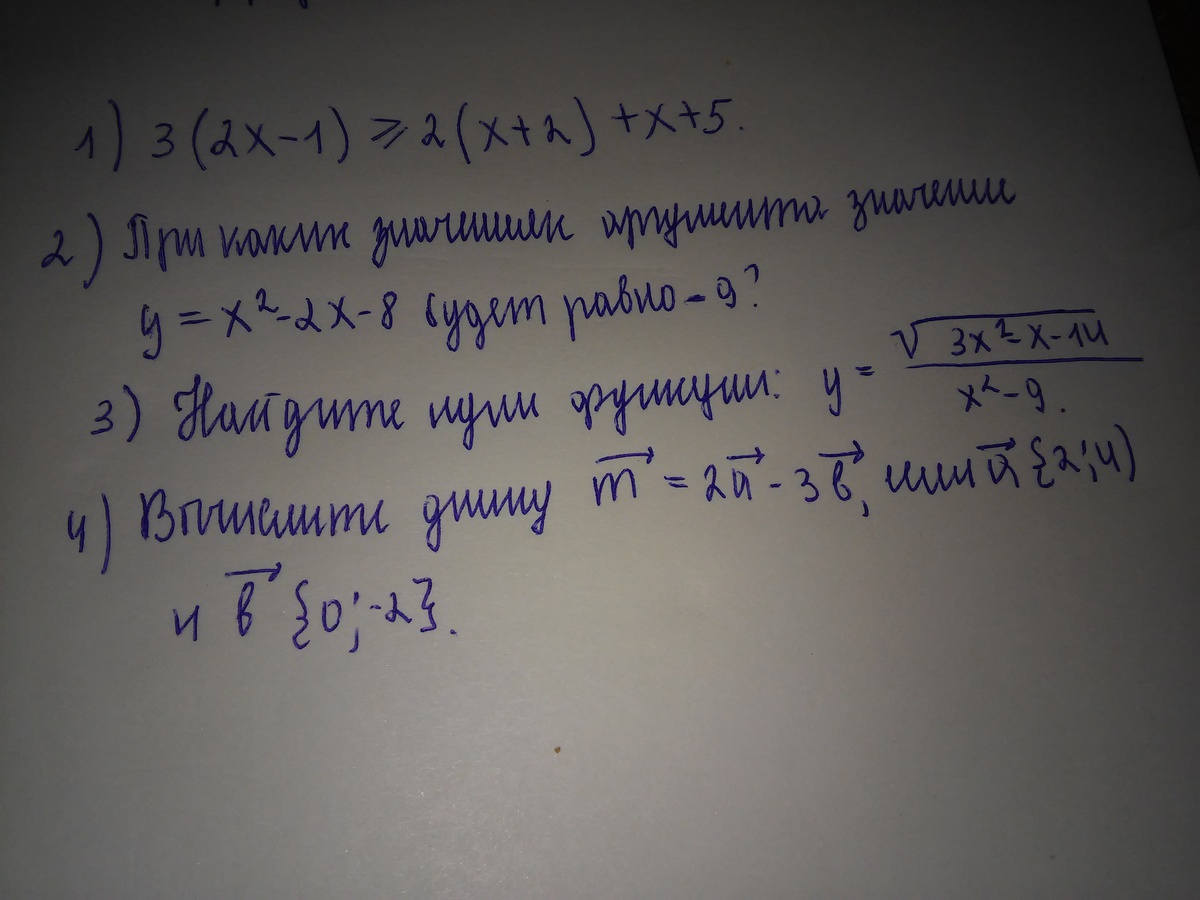 1) 3(2x-1) ⩾ 2(x+2) + x+5.
2) При каких значениях аргумента значение
y = x²-2x-8 будет равно -9?
3) Найдите нули функции: y = √(3x²-x-14) / (x²-9).
4) Вычислите длину m⃗ = 2a⃗ - 3b⃗, если a⃗ {2;4)
и b⃗ {0;-2}.